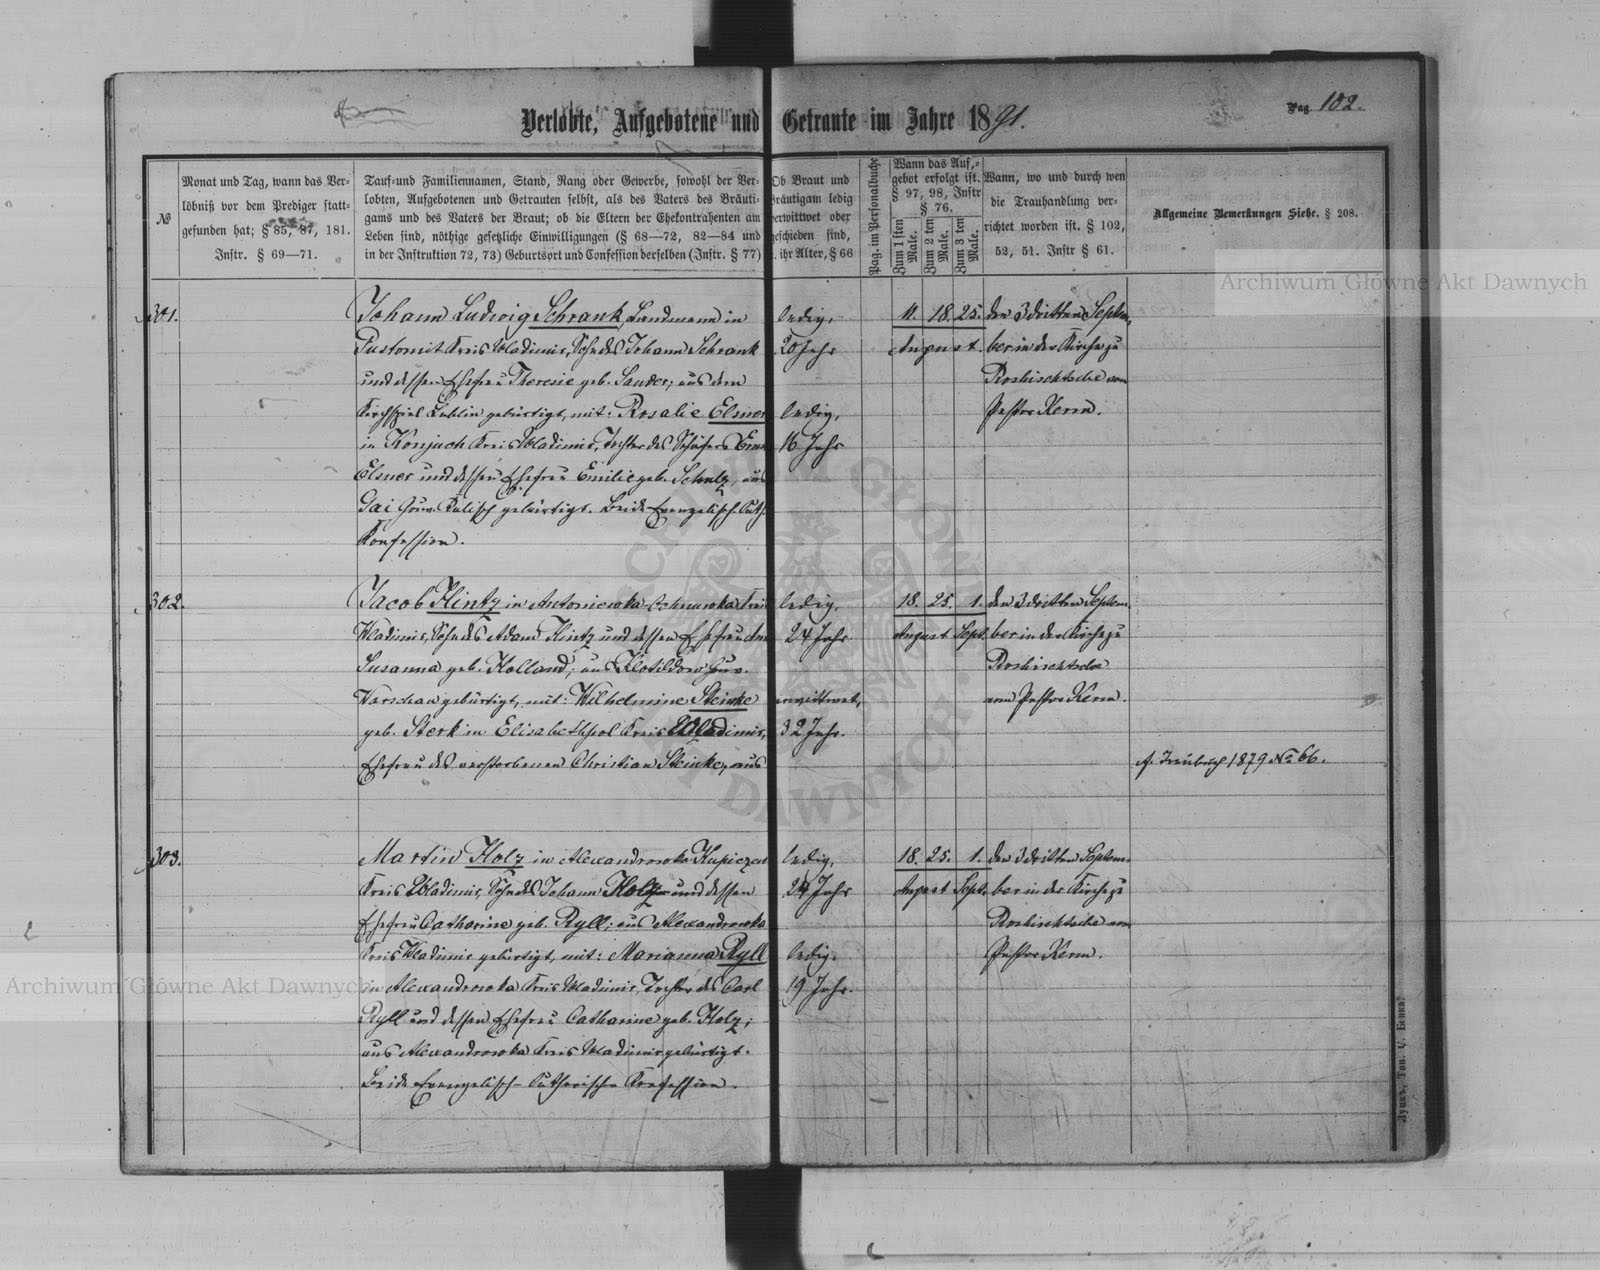 Verlobte, Aufgebotene und Getraute im Jahre 1891.
Pag. 102.
№
Monat und Tag, wann das Ver-
löbniß vor dem Prediger statt-
gefunden hat; § 85, 87, 181.
Instr. § 69—71.
Tauf-und Familiennamen, Stand, Rang oder Gewerbe, sowohl der Ver-
lobten, Aufgebotenen und Getrauten selbst, als des Vaters des Bräuti-
gams und des Vaters der Braut; ob die Eltern der Ehekontrahenten am
Leben sind, nöthige gesetzliche Einwilligungen (§ 68—72, 82—84 und
in der Instruktion 72, 73) Geburtsort und Confession derselben (Instr. § 77)
Ob Braut und
Bräutigam ledig
verwittwet oder
geschieden sind,
ihr Alter, § 66
Pag. im Personalbuche
Wann das Auf-
gebot erfolgt ist.
§ 97, 98, Instr
§ 76.
Zum 1 sten Male.
Zum 2 ten Male.
Zum 3 ten Male.
Wann, wo und durch wen
die Trauhandlung ver-
richtet worden ist. § 102,
52, 51. Instr § 61.
Allgemeine Bemerkungen Siehe. § 208.
Archiwum Główne Akt Dawnych
301.
Johann Ludwig Schrank, Landmann in
Pustomit Kreis Wladimir, Sohn des Johann Schrank
und dessen Ehefrau Theresie geb. Sander; aus dem
Kirchspiel Lublin gebürtigt, mit: Rosalie Elsner
in Konjuch Kreis Wladimir, Tochter des Schäfers
Elsner und dessen Ehefrau Emilie geb. Schulz, aus
Gai Gouv. Kalisch gebürtigt. Beide Evangelisch-Luth.
Konfession.
ledig,
20 Jahr
ledig,
16 Jahr
11. 18. 25.
August.
den 3 dritten Septem-
ber in der Kirche zu
Roshischtsche vom
Pastor Kerm.
302.
Jacob Hintz in Antoniewka-Kreis
Wladimir, Sohn des Adam Hintz und dessen Ehefrau
Susanna geb. Holland; aus Klotildow Guv.
Warschau gebürtigt, mit: Wilhelmine Steinke
geb. Sterk in Elisabethpol Kreis Wladimir,
Ehefrau des verstorbenen Christian Steinke, aus
ledig,
24 Jahr
verwittwet,
32 Jahr.
18. 25. 1.
August Sept.
den 3 dritten Septem-
ber in der Kirche zu
Roshischtsche
vom Pastor Kerm.
1879 № 66.
303.
Martin Holz in Alexandrowka-Kupiczew
Kreis Wladimir, Sohn des Johann Holz und dessen
Ehefrau Catharine geb. Ryll; aus Alexandrowka
Kreis Wladimir gebürtigt, mit: Marianna Ryll
in Alexandrowka Kreis Wladimir, Tochter des Carl
Ryll und dessen Ehefrau Catharine geb. Holz;
aus Alexandrowka Kreis Wladimir gebürtigt.
Beide Evangelisch-Lutherischer Konfession.
ledig,
24 Jahr
ledig.
19 Jahr.
18. 25. 1.
August Sept.
den 3 dritten Septem-
ber in der Kirche zu
Roshischtsche vom
Pastor Kerm.
Archiwum Główne Akt Dawnych